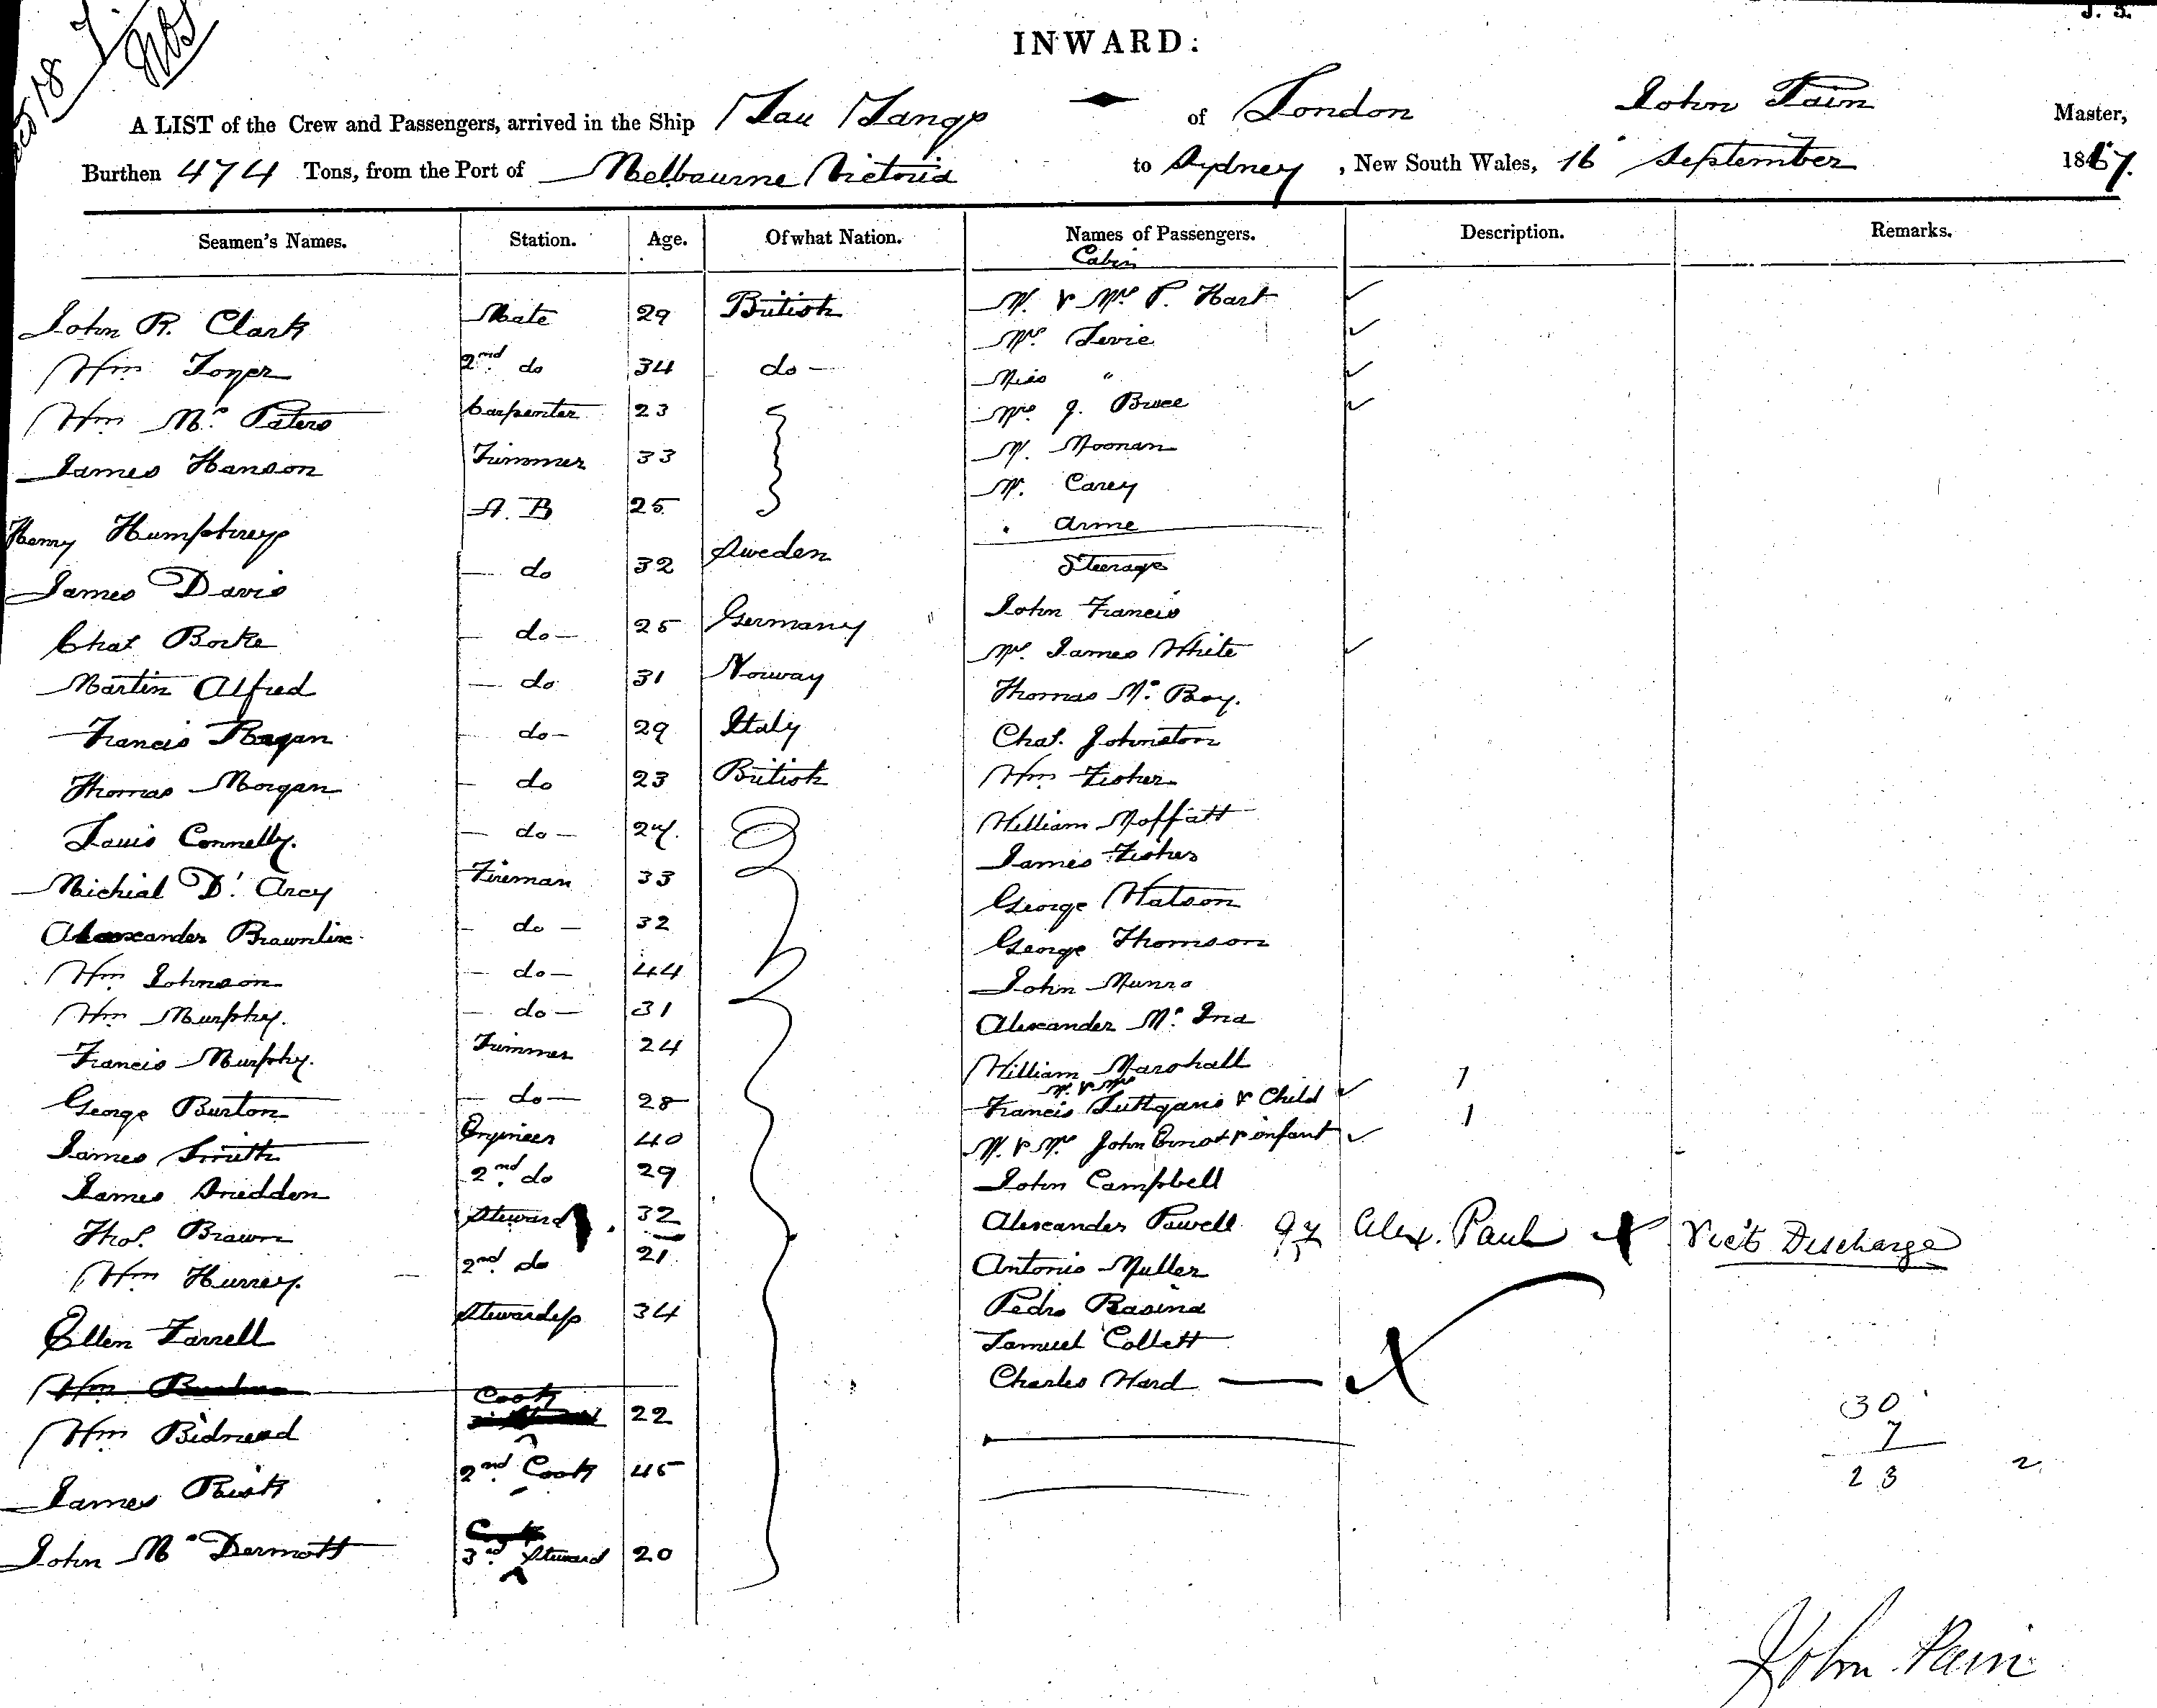 J. 5.
INWARD:
A LIST of the Crew and Passengers, arrived in the Ship You Yangs of London John Pain Master,
Burthen 474 Tons, from the Port of Melbourne Victoria to Sydney, New South Wales, 16 September 1867.
Seamen's Names. Station. Age. Of what Nation. Names of Passengers. Description. Remarks.
Cabin
John R. Clark Mate 29 British Mr. & Mrs P. Hart
Mrs Levie
Wm Toner 2nd do 34 do Miss "
Wm Mc Paters Carpenter 23 Mrs J. Bruce
James Hanson Trimmer 33 Mr. Noonan
Mr. Carey
Henry Humphreys A. B 25 Arme
James Davis do 32 Sweden Steerage
Chas Borke do 25 Germany John Francis
Mrs. James White
Martin Alfred do 31 Norway Thomas Mc Boy.
Francis Ragan do 29 Italy Chas. Johnston
Thomas Morgan do 23 British Wm Fisher
Louis Connelly. do 24 William Moffatt
James Fisher
Michial D'Arcy Fireman 33 George Watson
Alexander Brawnlie do 32 George Thomson
Wm Johnson do 44 John Munro
Wm Murphy. do 31 Alexander Mc Ina
Francis Murphy. Trimmer 24 William Marshall
Mr. & Mrs
George Burton do 28 Francis & Child 1
James Smith Engineer 40 Mr. & Mrs John & infant 1
James Sneddon 2nd do 29 John Campbell
Thos. Brawn Steward 32 Alexander Powell Alex. Paul Vict Discharge
Wm Hurrey. 2nd do 21 Antonio Muller
Pedro Rasina
Ellen Farrell Stewardess 34 Samuel Collett
Charles Ward
Wm
Wm Bidmead Cook 22 30
7
James Risk 2nd Cook 45 23
Cook
John Mc Dermott 3rd Steward 20
John Pain